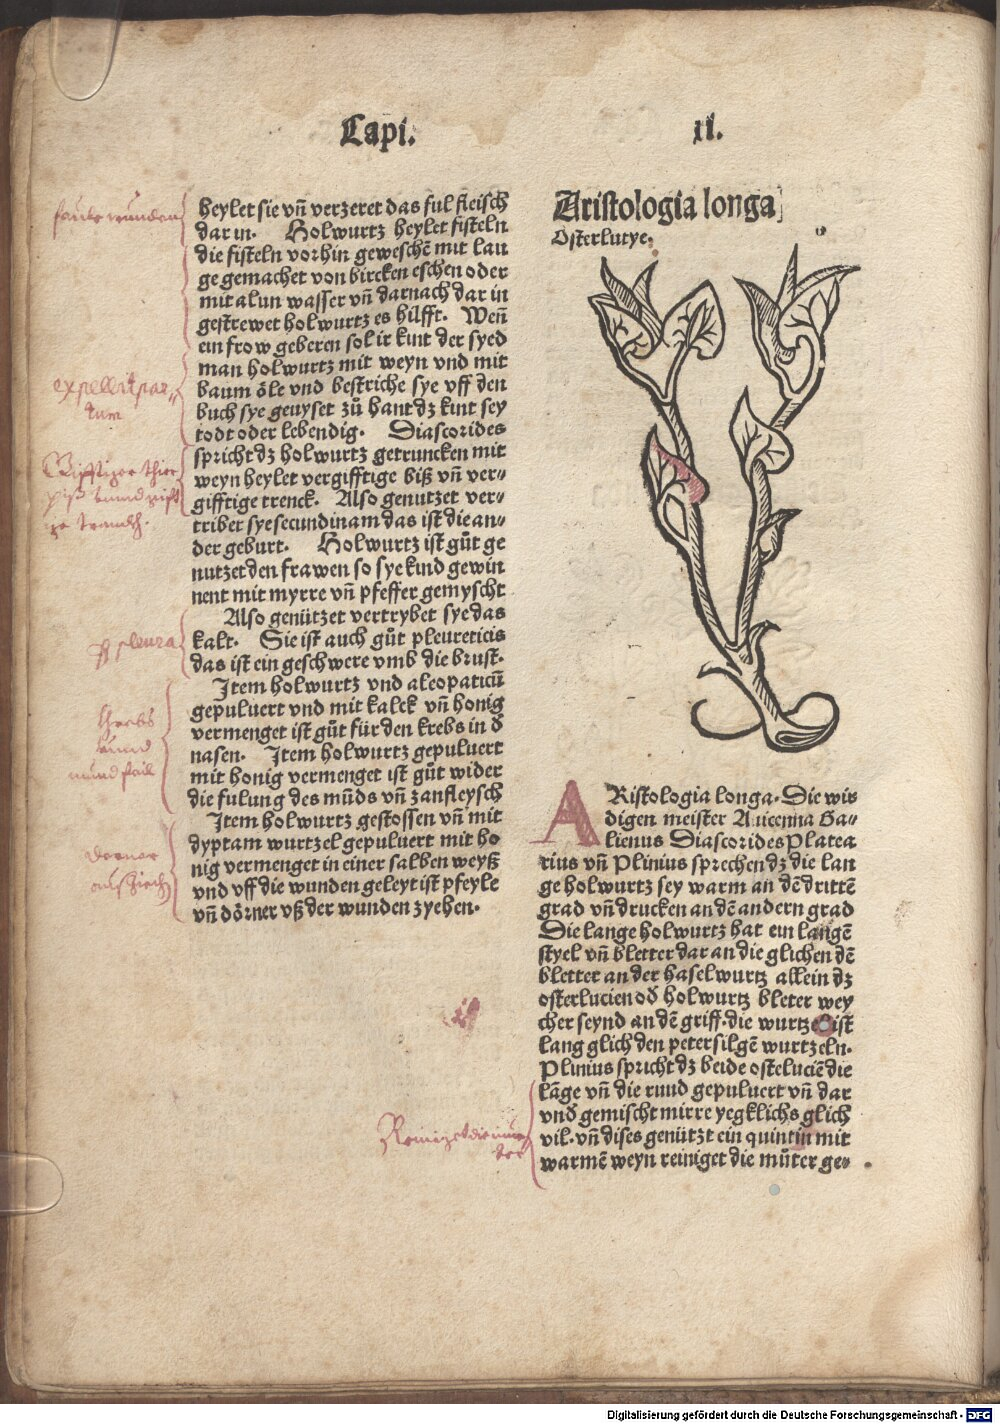 Capi. ii.
heylet sie vñ verzeret das ful fleisch
dar in. Holwurtz heylet fisteln
die fisteln vorhin geweschẽ mit lau
ge gemachet von bircken eschen oder
mit alun wasser vñ darnach dar in
gestrewet holwurtz es hilfft. Weñ
ein frow geberen sol ir kint der syed
man holwurtz mit weyn vnd mit
baum öle vnd bestriche sye vff den
buch sye genyset zů hant dz kint sey
todt oder lebendig. Diascorides
spricht dz holwurtz getruncken mit
weyn heylet vergifftige biß vñ ver⸗
gifftige trenck. Also genutzet ver⸗
tribet sye secundinam das ist die an⸗
der geburt. Holwurtz ist gůt ge
nutzet den frawen so sye kind gewin
nent mit myrre vñ pfeffer gemyscht
Also genützet vertrybet sye das
kalt. Sie ist auch gůt pleureticis
das ist ein geschwere vmb die brust.
Item holwurtz vnd aleopaticũ
gepuluert vnd mit kalck vñ honig
vermenget ist gůt für den krebs in d̄
nasen. Item holwurtz gepuluert
mit honig vermenget ist gůt wider
die fulung des mũds vñ zanfleysch
Item holwurtz gestossen vñ mit
dyptam wurtzel gepuluert mit ho
nig vermenget in einer salben weyß
vnd vff die wunden geleyt ist pfeyle
vñ dörner vß der wunden zyehen.
faule wunden
expellit par⸗
tum
Gifftiger thier
biß vnnd gift
ge tranckh.
pleura
khrebs
vnnd
mundfeil
Dorner
ausZiech
Aristologia longa
Osterlutye.
ARistologia longa. Die wir
digen meister Auicenna Ga⸗
lienus Diascorides Platea
rius vñ Plinius sprechen dz die lan
ge holwurtz sey warm an dẽ drittẽ
grad vñ drucken an dẽ andern grad
Die lange holwurtz hat ein langẽ
styel vñ bletter dar an die glichen dẽ
bletter an der haselwurtz allein dz
osterlucien od̄ holwurtz bleter wey
cher seynd an dẽ griff. die wurtzel ist
lang glich den petersilgẽ wurtzeln.
Plinius spricht dz beide osteluciẽ die
lãge vñ die rund gepuluert vñ dar
vnd̄ gemischt mirre yegklichs glich
vil. vñ dises genützt ein quintin mit
warmẽ weyn reiniget die můter ge⸗
Reiniget die mut
ter
Digitalisierung gefördert durch die Deutsche Forschungsgemeinschaft - DFG